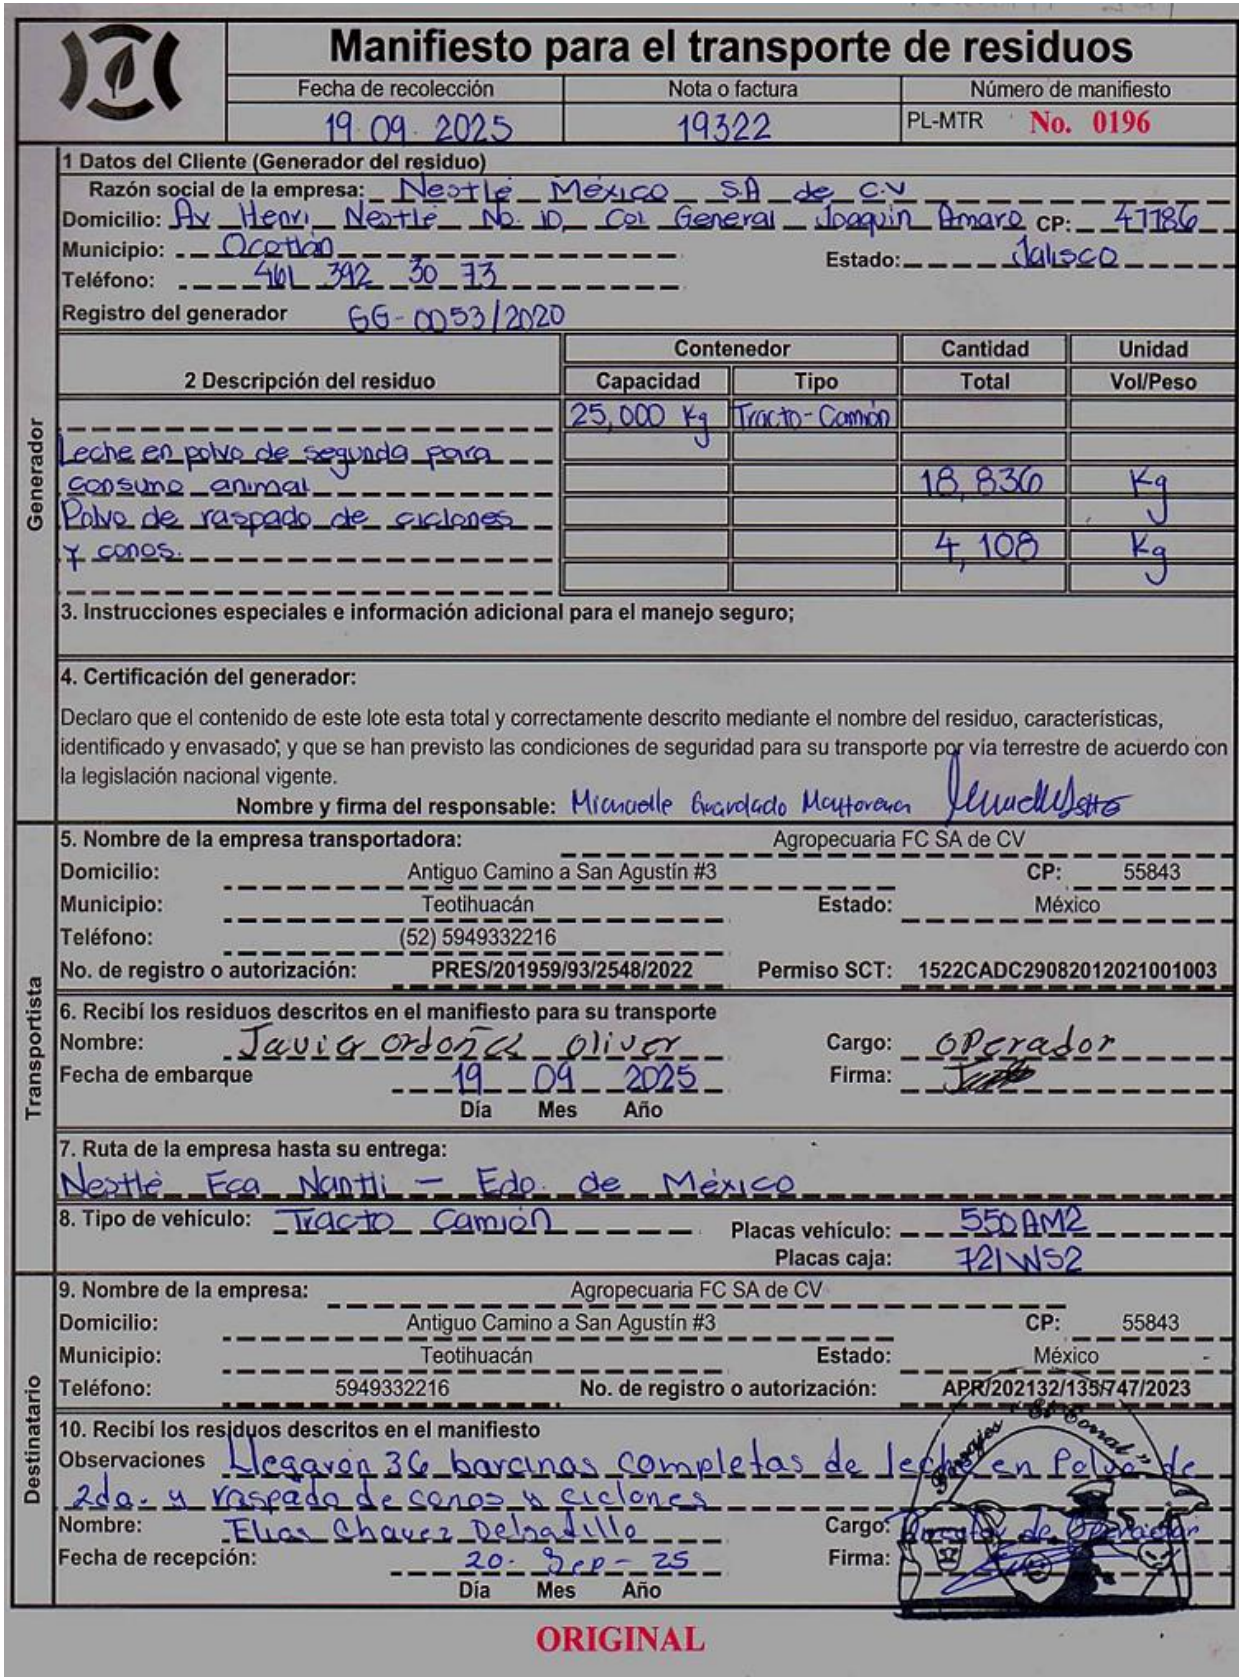 Manifiesto para el transporte de residuos
Fecha de recolección Nota o factura Número de manifiesto
19.09.2025 19322 PL-MTR No. 0196
Generador
1 Datos del Cliente (Generador del residuo)
Razón social de la empresa: Nestlé México SA de C.V
Domicilio: Av Henri Nestlé No. 10, Col General Joaquin Amaro CP: 47786
Municipio: Ocotlán Estado: Jalisco
Teléfono: 461 392 30 73
Registro del generador GG-0053/2020
Contenedor Cantidad Unidad
2 Descripción del residuo Capacidad Tipo Total Vol/Peso
25,000 Kg Tracto-Camión
Leche en polvo de segunda para
consumo animal 18,836 Kg
Polvo de raspado de ciclones
y conos. 4,108 Kg
3. Instrucciones especiales e información adicional para el manejo seguro;
4. Certificación del generador:
Declaro que el contenido de este lote esta total y correctamente descrito mediante el nombre del residuo, características,
identificado y envasado; y que se han previsto las condiciones de seguridad para su transporte por vía terrestre de acuerdo con
la legislación nacional vigente.
Nombre y firma del responsable: Guardado
Transportista
5. Nombre de la empresa transportadora: Agropecuaria FC SA de CV
Domicilio: Antiguo Camino a San Agustín #3 CP: 55843
Municipio: Teotihuacán Estado: México
Teléfono: (52) 5949332216
No. de registro o autorización: PRES/201959/93/2548/2022 Permiso SCT: 1522CADC29082012021001003
6. Recibí los residuos descritos en el manifiesto para su transporte
Nombre: Javier ordoñez oliver Cargo: operador
Fecha de embarque 19 09 2025 Firma:
Día Mes Año
7. Ruta de la empresa hasta su entrega:
Nestlé Fca Nantli - Edo. de México
8. Tipo de vehículo: Tracto Camión Placas vehículo: 550AM2
Placas caja: 721WS2
Destinatario
9. Nombre de la empresa: Agropecuaria FC SA de CV
Domicilio: Antiguo Camino a San Agustín #3 CP: 55843
Municipio: Teotihuacán Estado: México
Teléfono: 5949332216 No. de registro o autorización: APR/202132/135/747/2023
10. Recibí los residuos descritos en el manifiesto
Observaciones Llegaron 36 barcinas completas de leche en Polvo de
2da. y raspado de conos y ciclones
Forrajes "El Corral"
Nombre: Elias Chavez Delgadillo Cargo: de Operador
Fecha de recepción: 20-Sep-25 Firma:
Día Mes Año
ORIGINAL